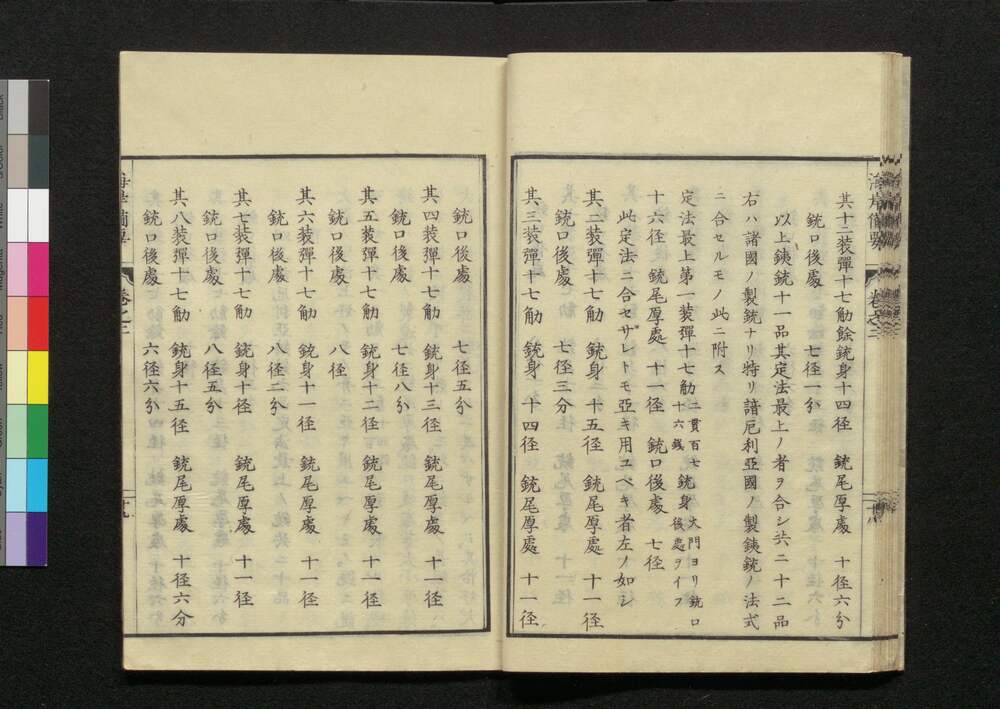 其十二装彈十七觔餘銃身十四径 銃尾厚處 十径六分
銃口後處 七径一分
以上銕銃十一品其定法最上ノ者ヲ合シ共二十二品
右ハ諸國ノ製銃ナリ特リ諳厄利亞國ノ製銕銃ノ法式
ニ合セルモノ此ニ附ス
定法最上第一装彈十七觔二貫百七十六錢銃身火門ヨリ銃口後處ヲイフ
十六径 銃尾厚處 十一径 銃口後處 七径
此定法ニ合セザレトモ亞キ用ユベキ者左ノ如シ
其二装彈十七觔 銃身 十五径 銃尾厚處 十一径
銃口後處 七径三分
其三装彈十七觔 銃身 十四径 銃尾厚處 十一径
海岸備要
卷之二
十八
銃口後處 七径五分
其四装彈十七觔 銃身十三径 銃尾厚處 十一径
銃口後處 七径八分
其五装彈十七觔 銃身十二径 銃尾厚處 十一径
銃口後處 八径
其六装彈十七觔 銃身十一径 銃尾厚處 十一径
銃口後處 八径二分
其七装彈十七觔 銃身十径 銃尾厚處 十一径
銃口後處 八径五分
其八装彈十七觔 銃身十五径 銃尾厚處 十径六分
銃口後處 六径六分